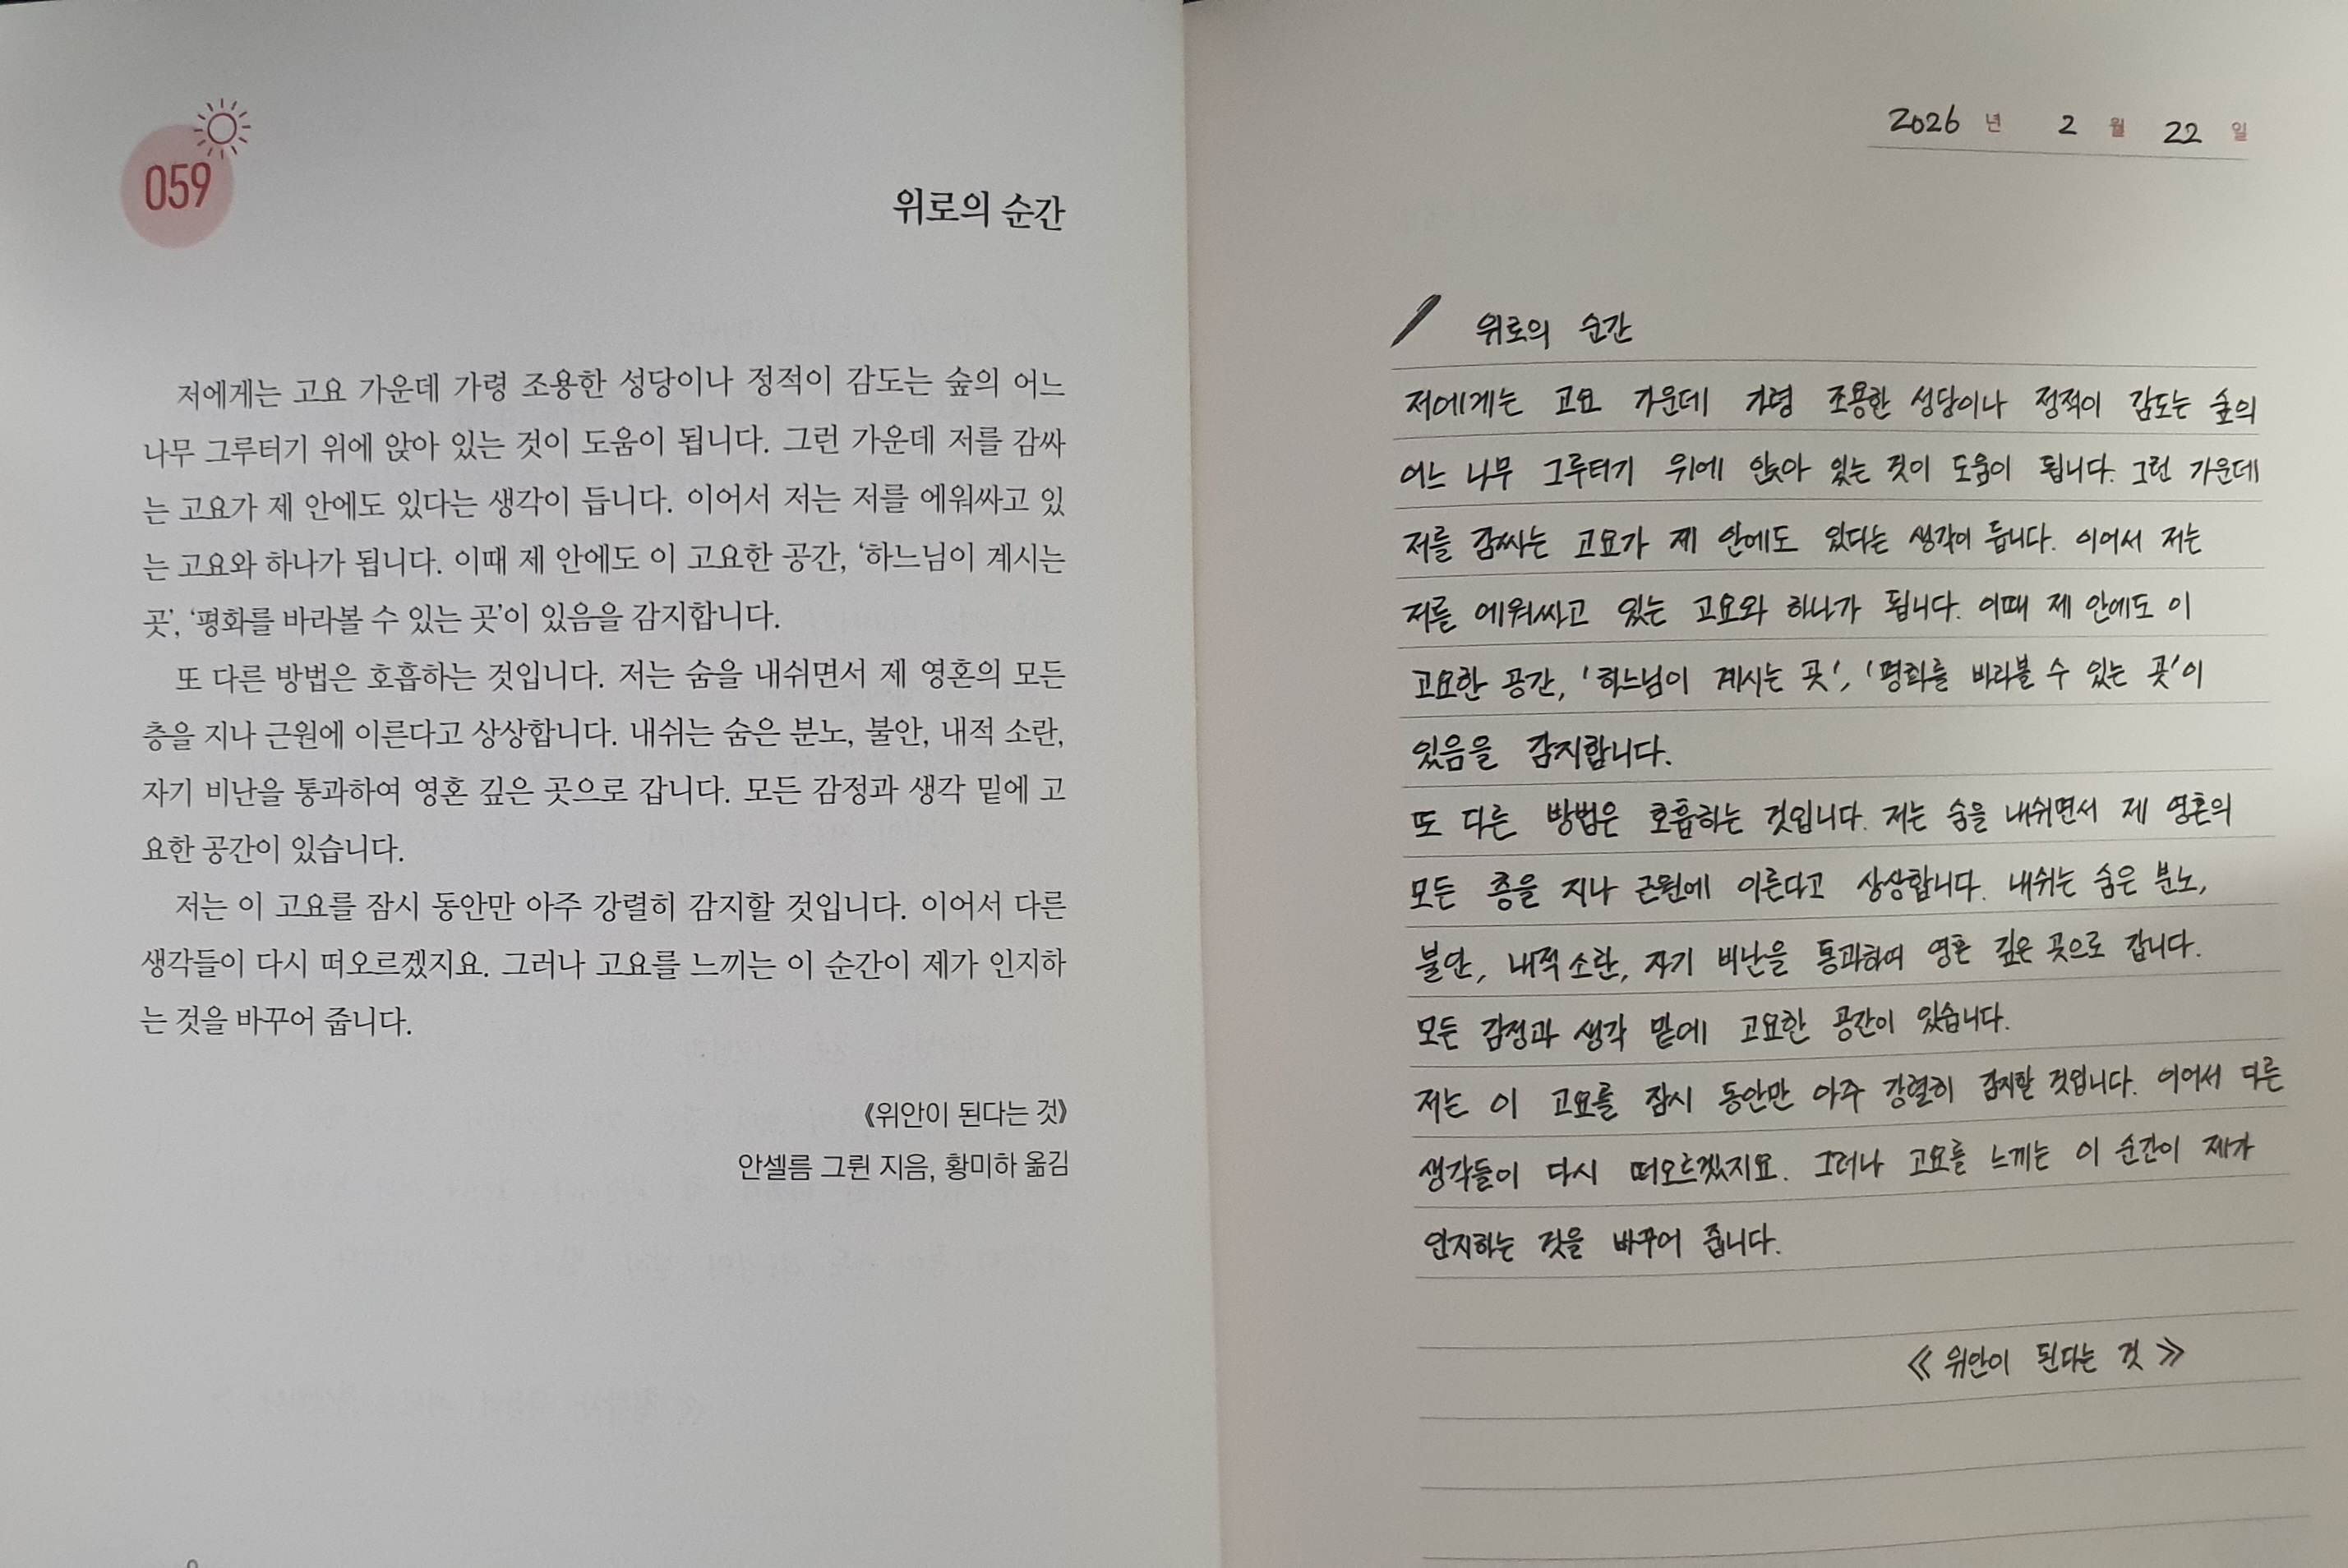 059
위로의 순간
저에게는 고요 가운데 가령 조용한 성당이나 정적이 감도는 숲의 어느
나무 그루터기 위에 앉아 있는 것이 도움이 됩니다. 그런 가운데 저를 감싸
는 고요가 제 안에도 있다는 생각이 듭니다. 이어서 저는 저를 에워싸고 있
는 고요와 하나가 됩니다. 이때 제 안에도 이 고요한 공간, ‘하느님이 계시는
곳’, ‘평화를 바라볼 수 있는 곳’이 있음을 감지합니다.
또 다른 방법은 호흡하는 것입니다. 저는 숨을 내쉬면서 제 영혼의 모든
층을 지나 근원에 이른다고 상상합니다. 내쉬는 숨은 분노, 불안, 내적 소란,
자기 비난을 통과하여 영혼 깊은 곳으로 갑니다. 모든 감정과 생각 밑에 고
요한 공간이 있습니다.
저는 이 고요를 잠시 동안만 아주 강렬히 감지할 것입니다. 이어서 다른
생각들이 다시 떠오르겠지요. 그러나 고요를 느끼는 이 순간이 제가 인지하
는 것을 바꾸어 줍니다.
《위안이 된다는 것》
안셀름 그륀 지음, 황미하 옮김
2026 년 2 월 22 일
위로의 순간
저에게는 고요 가운데 가령 조용한 성당이나 정적이 감도는 숲의
어느 나무 그루터기 위에 앉아 있는 것이 도움이 됩니다. 그런 가운데
저를 감싸는 고요가 제 안에도 있다는 생각이 듭니다. 이어서 저는
저를 에워싸고 있는 고요와 하나가 됩니다. 이때 제 안에도 이
고요한 공간, '하느님이 계시는 곳', '평화를 바라볼 수 있는 곳'이
있음을 감지합니다.
또 다른 방법은 호흡하는 것입니다. 저는 숨을 내쉬면서 제 영혼의
모든 층을 지나 근원에 이른다고 상상합니다. 내쉬는 숨은 분노,
불안, 내적 소란, 자기 비난을 통과하여 영혼 깊은 곳으로 갑니다.
모든 감정과 생각 밑에 고요한 공간이 있습니다.
저는 이 고요를 잠시 동안만 아주 강렬히 감지할 것입니다. 이어서 다른
생각들이 다시 떠오르겠지요. 그러나 고요를 느끼는 이 순간이 제가
인지하는 것을 바꾸어 줍니다.
≪위안이 된다는 것≫